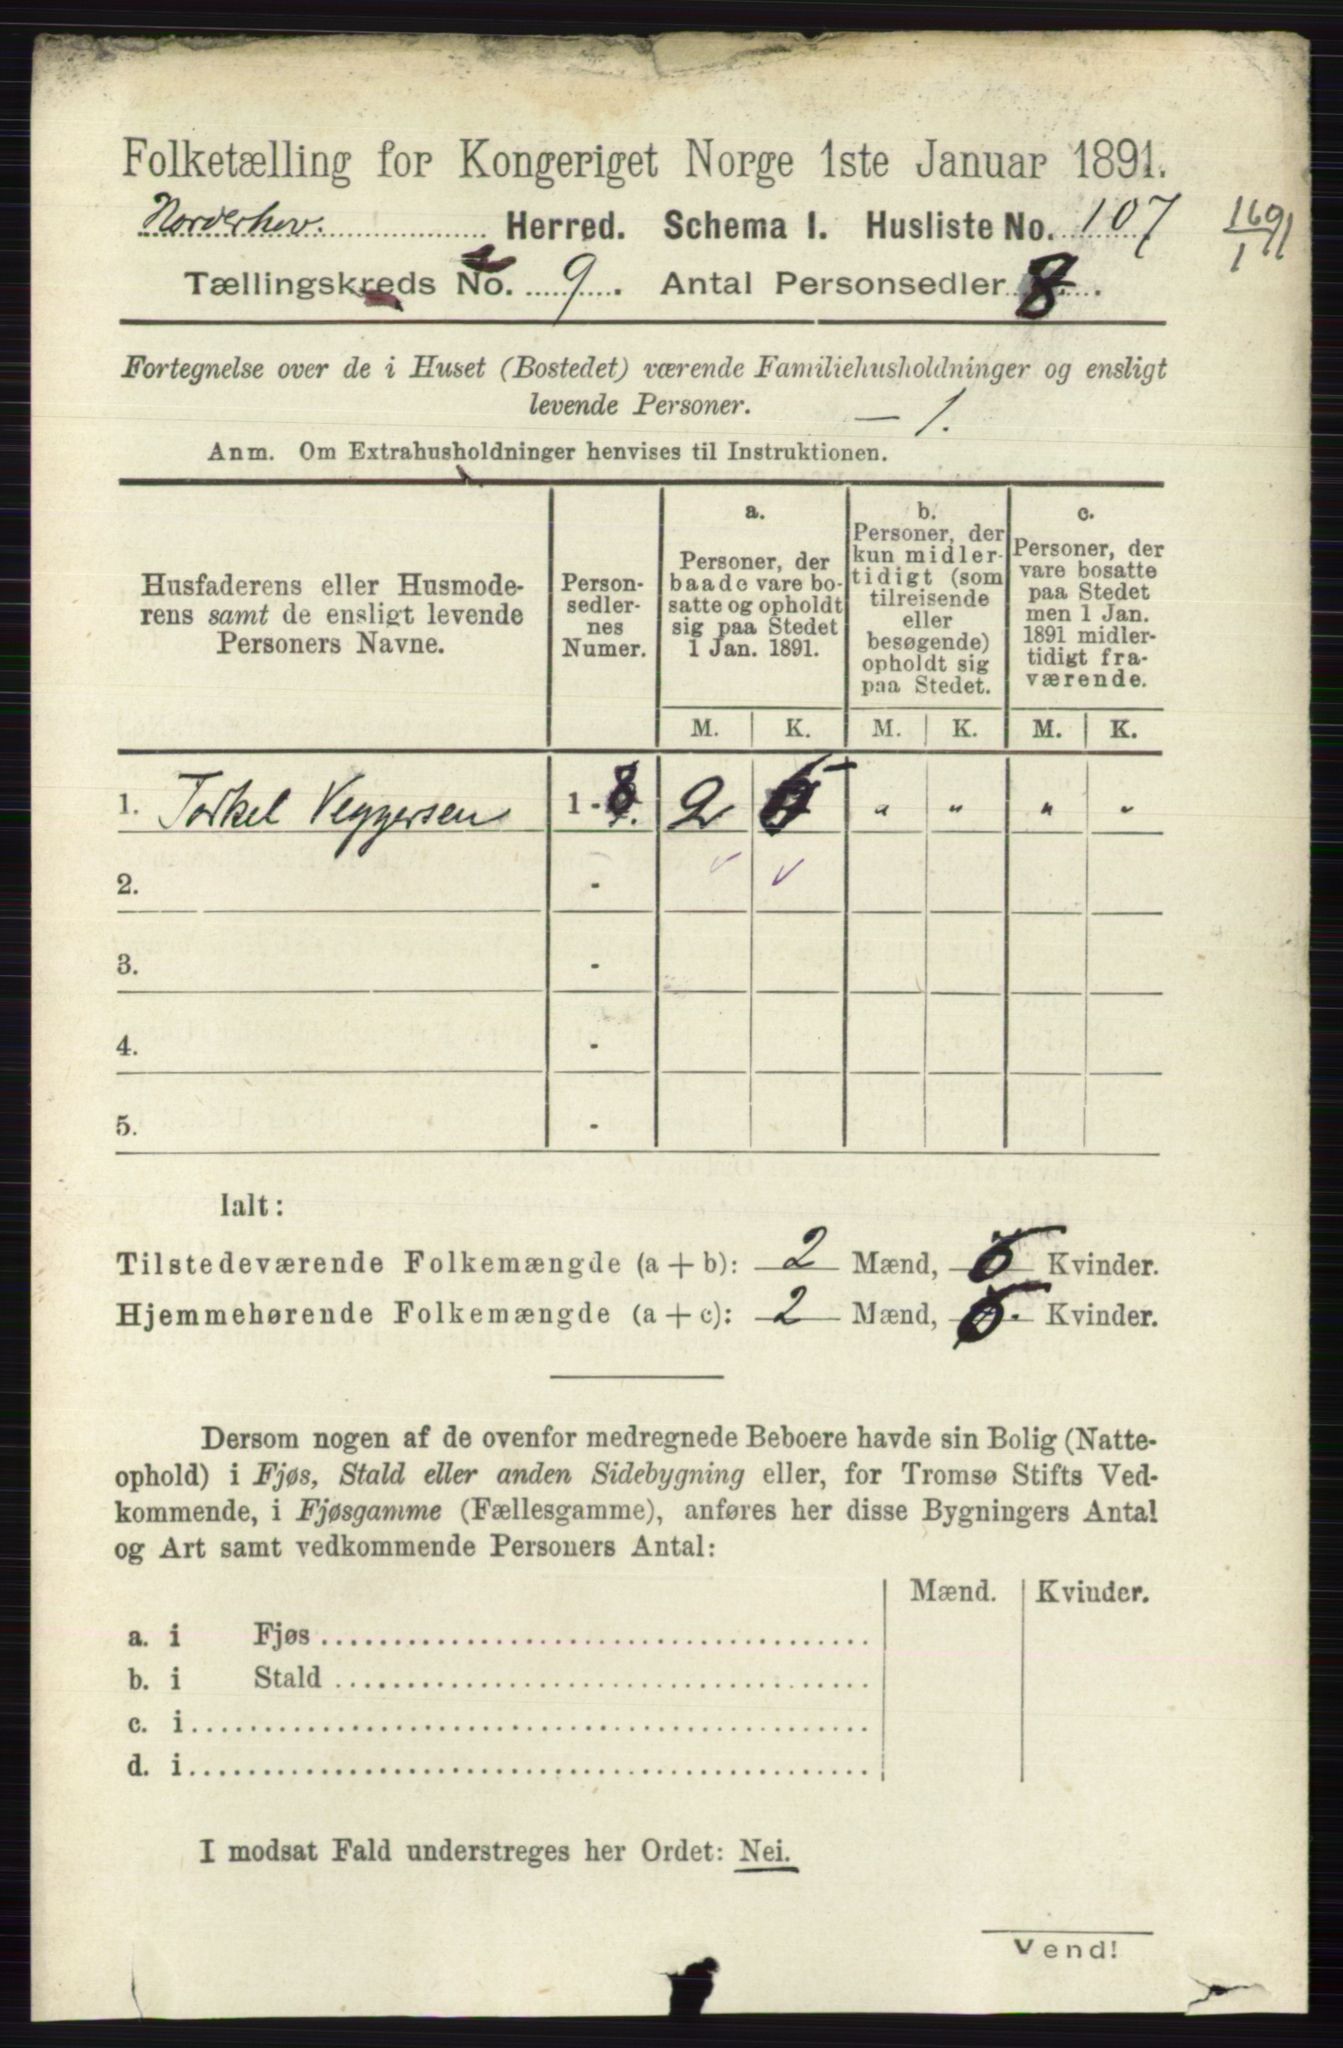 Folketælling for Kongeriget Norge 1ste Januar 1891.
Norderhov. Herred. Schema I. Husliste No. 107
1691
1
Tællingskreds No. 9. Antal Personsedler 8.
Fortegnelse over de i Huset (Bostedet) værende Familiehusholdninger og ensligt
levende Personer. — 1.
Anm. Om Extrahusholdninger henvises til Instruktionen.
Husfaderens eller Husmode-
rens samt de ensligt levende
Personers Navne.
Person-
sedler-
nes
Numer.
a.
Personer, der
baade vare bo-
satte og opholdt
sig paa Stedet
1 Jan. 1891.
b.
Personer, der
kun midler-
tidigt (som
tilreisende
eller
besøgende)
opholdt sig
paa Stedet.
c.
Personer, der
vare bosatte
paa Stedet
men 1 Jan.
1891 midler-
tidigt fra-
værende.
M. K. M. K. M. K.
1. Torkel Veggersen 1 - 8. 2 6 " " " "
2. -
3. -
4. -
5. -
Ialt:
Tilstedeværende Folkemængde (a + b): 2 Mænd, 6 Kvinder.
Hjemmehørende Folkemængde (a + c): 2 Mænd, 6. Kvinder.
Dersom nogen af de ovenfor medregnede Beboere havde sin Bolig (Natte-
ophold) i Fjøs, Stald eller anden Sidebygning eller, for Tromsø Stifts Ved-
kommende, i Fjøsgamme (Fællesgamme), anføres her disse Bygningers Antal
og Art samt vedkommende Personers Antal:
Mænd. Kvinder.
a. i Fjøs
b. i Stald
c. i
d. i
I modsat Fald understreges her Ordet: Nei.
Vend!